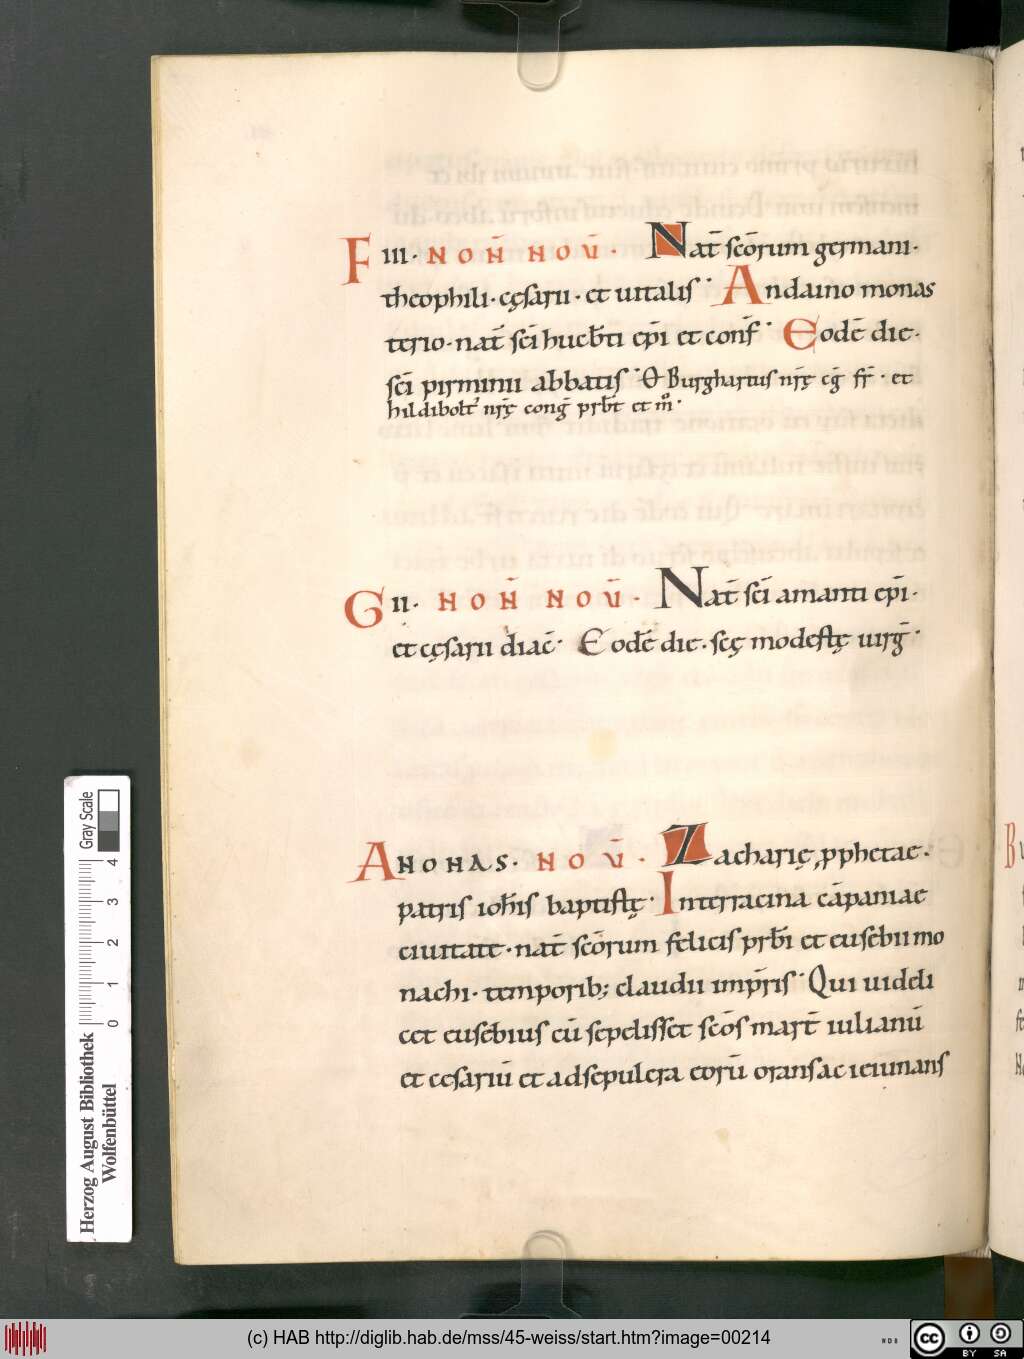 F III· NON̄ NOV̄· Nat̄ sc̄orum germani·
theophili· cęsarii· et uitalis· Andaino monas
terio· nat̄ sc̄i hucb̄ti ep̄i et conf̄· Eodē die·
sc̄i pirminii abbatis· O Burghartus nr̄ę cḡ fr̄· et
hildibolt̄ nr̄ę conḡ prb̄r et m̊·
G II· NON̄ NOV̄· Nat̄ sc̄i amanti ep̄i·
et cęsarii diac̄· Eodē die· scę modestę uirḡ·
A NONAS· NOV̄· Zacharię pphetae·
patris ioh̄is baptistę· Interracina cāpaniae
ciuitate· nat̄ sc̄orum felicis prb̄i et eusebii mo
nachi· temporib; claudii imp̄ris· Qui uideli
cet eusebius cū sepelisset sc̄os mart̄ iulianū
et cesariū et adsepulcra eorū orans ac ieiunans
Gray Scale
4
3
2
1
0
Herzog August Bibliothek
Wolfenbüttel
(c) HAB http://diglib.hab.de/mss/45-weiss/start.htm?image=00214
cc BY SA